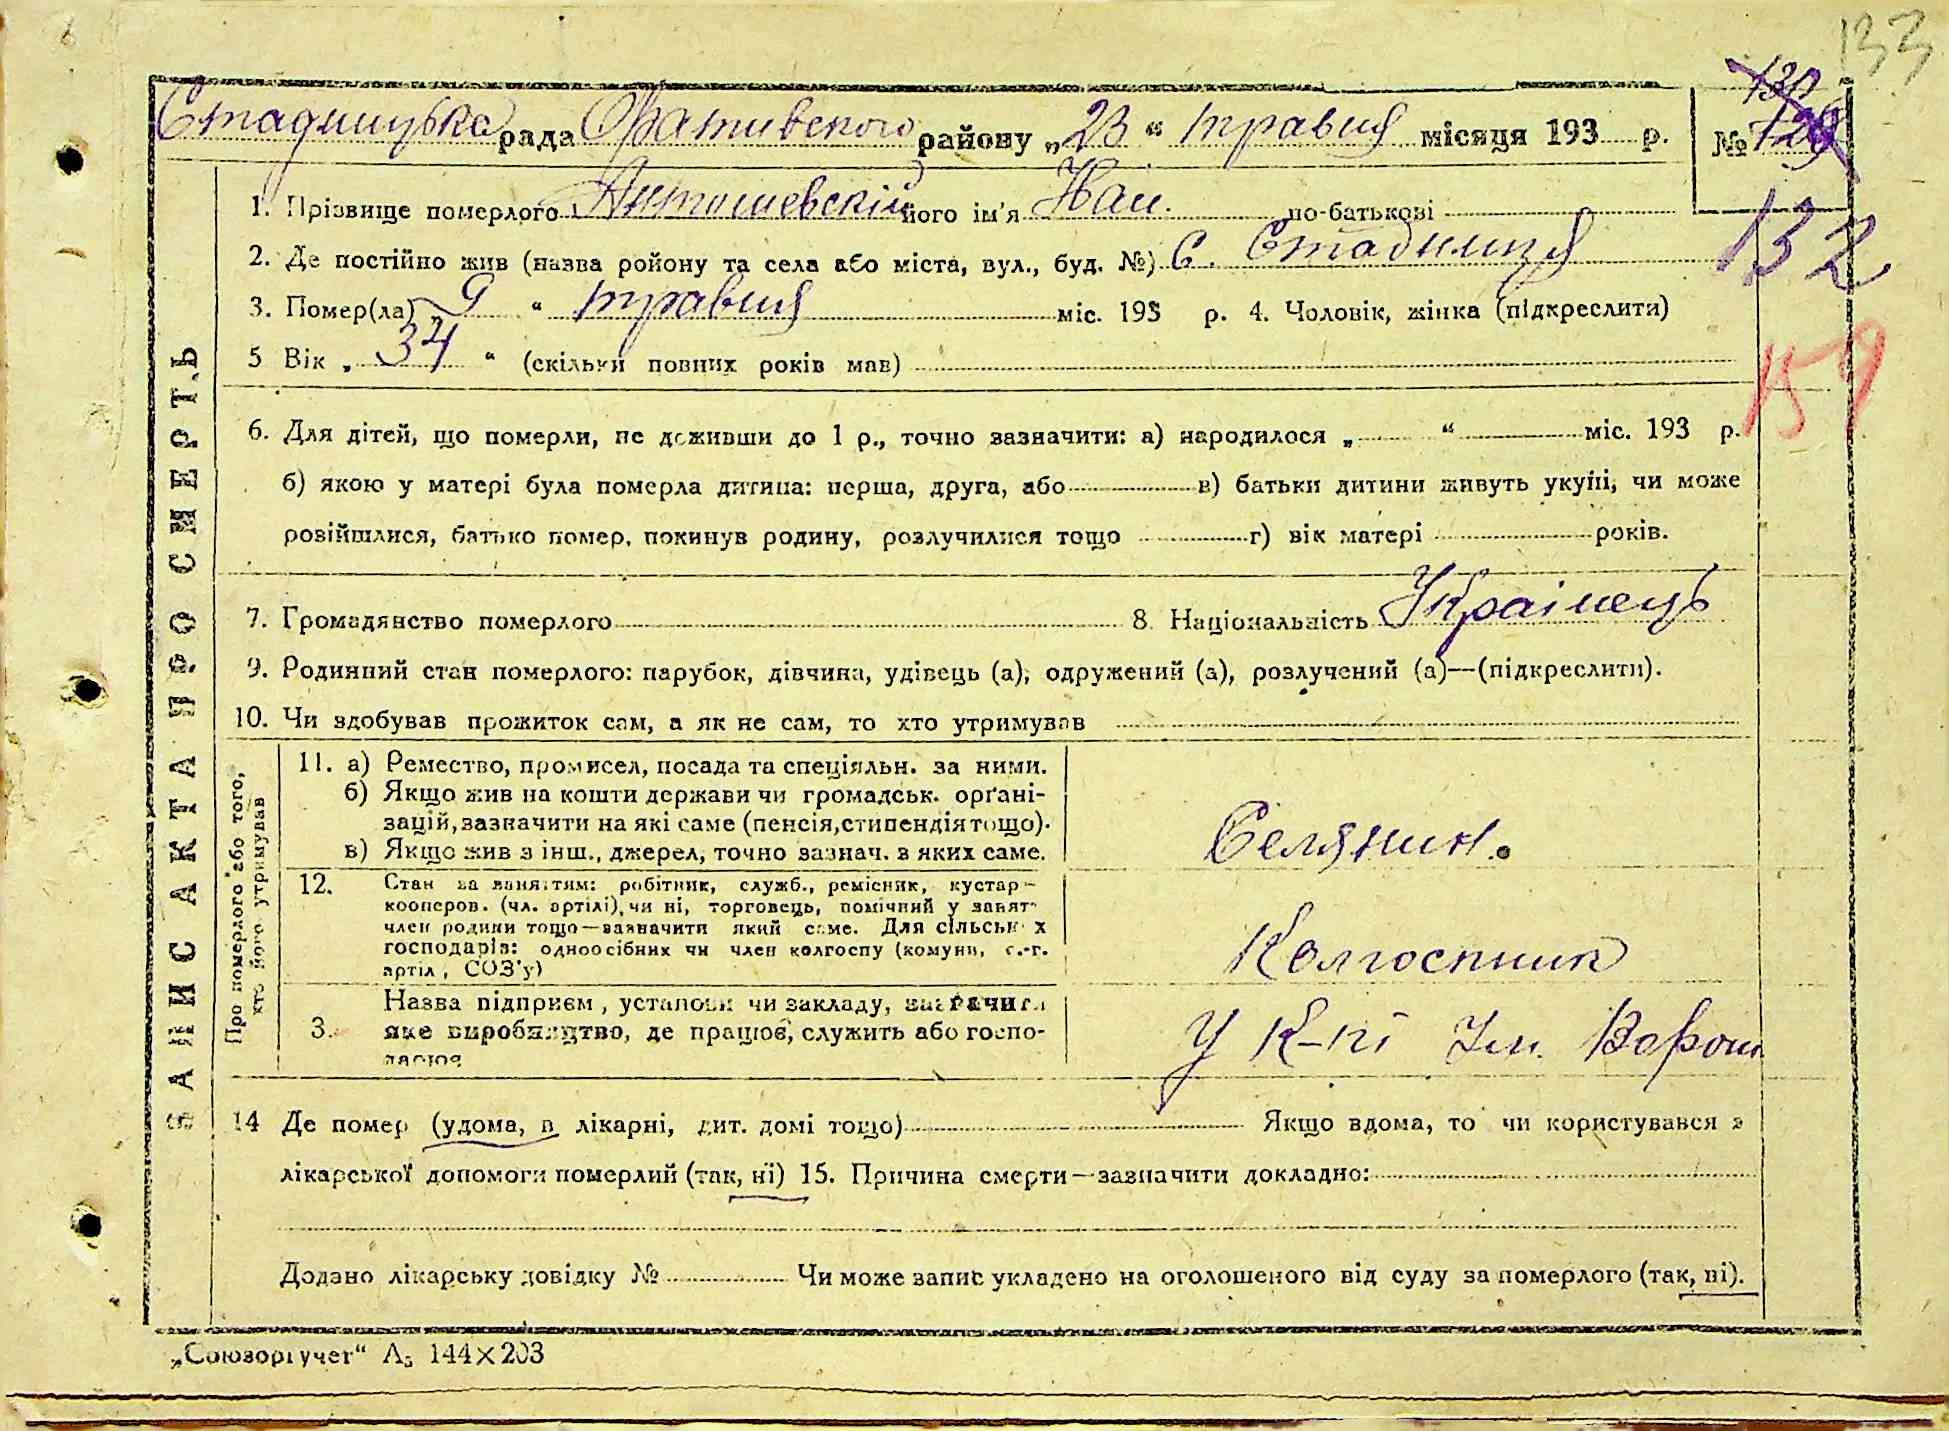 133
Стадницька рада Оративського району „23“ травня місяця 193 р.
№
132
1. Прізвище померлого Антошевскій його ім'я по-батькові
2. Де постійно жив (назва ройону та села або міста, вул., буд. №) с. Стадниця
3. Помер(ла) „9“ травня міс. 193 р. 4. Чоловік, жінка (підкреслити)
5 Вік „34“ (скільки повних років мав)
159
6. Для дітей, що померли, не доживши до 1 р., точно зазначити: а) народилося „ “ міс. 193 р.
б) якою у матері була померла дитина: перша, друга, або в) батьки дитини живуть укупі, чи може
розійшлися, батько помер, покинув родину, розлучилися тощо г) вік матері років.
7. Громадянство померлого 8. Національність Українець
9. Родинний стан померлого: парубок, дівчина, удівець (а), одружений (а), розлучений (а)—(підкреслити).
10. Чи здобував прожиток сам, а як не сам, то хто утримував
ЗАПИС АКТА ПРО СМЕРТЬ
Про померлого або того,
хто його утримував
11. а) Ремество, промисел, посада та спеціяльн. за ними.
б) Якщо жив на кошти держави чи громадськ. орґані-
зацій, зазначити на які саме (пенсія, стипендія тощо).
в) Якщо жив з інш., джерел, точно зазнач. з яких саме.
Селянин.
12. Стан за заняттям: робітник, служб., ремісник, кустар-
кооперов. (чл. артілі), чи ні, торговець, помічний у занят-
член родини тощо—зазначити який саме. Для сільських
господарів: одноосібних чи член колгоспу (комуни, с.-г.
артіл, СОЗ'у)
Колгоспник
3. Назва підприєм, установи чи закладу, зазначити
яке виробництво, де працює, служить або госпо-
дарює
У К-пі Ім. Ворош
14 Де помер (удома, в лікарні, дит. домі тощо) Якщо вдома, то чи користувався з
лікарської допомоги померлий (так, ні) 15. Причина смерти—зазначити докладно:
Додано лікарську довідку № Чи може запис укладено на оголошеного від суду за померлого (так, ні).
„Союзоргучет“ А5 144×203